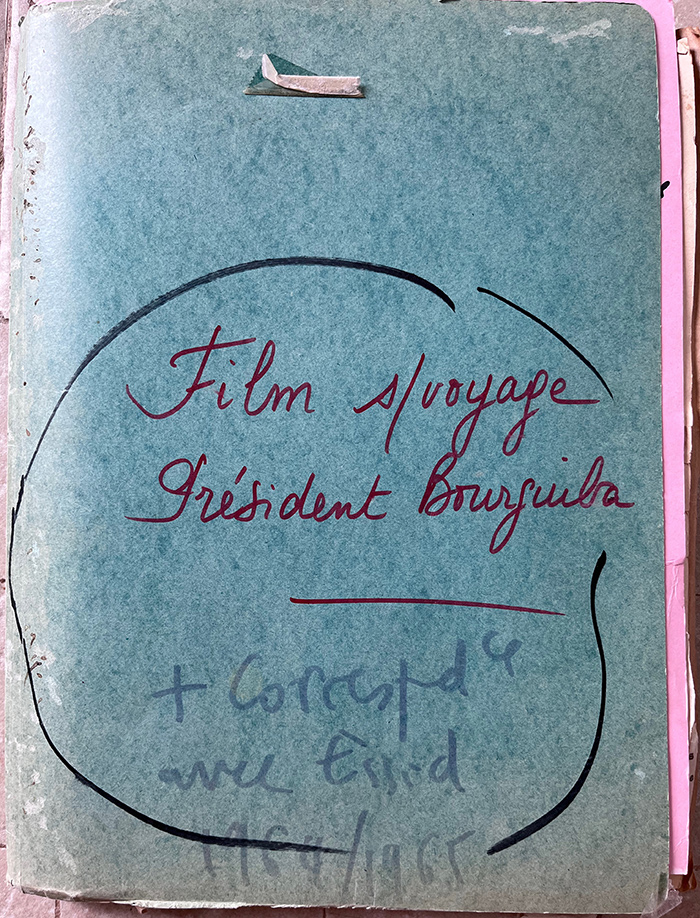 Film s/voyage
Président Bourguiba
+ Correspdce
avec Essid
1964/1965